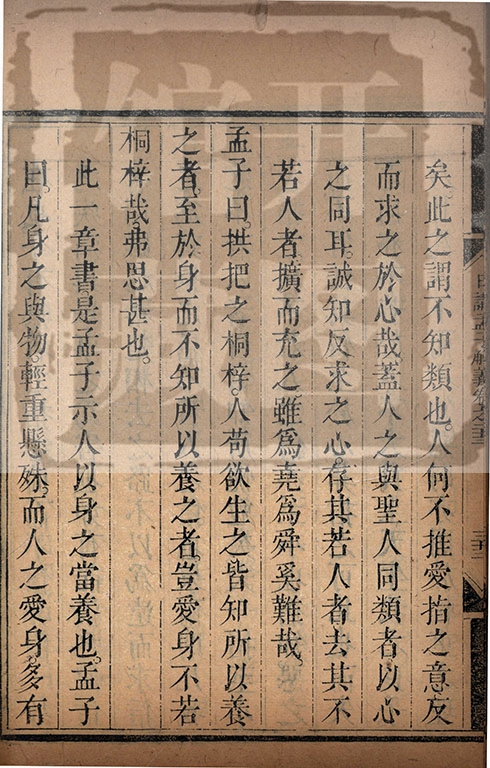 日講孟子解義卷之
矣此之謂不知類也。人何不推愛指之意反
而求之於心哉蓋人之與聖人同類者以心
之同耳。誠知反求之心。存其若人者去其不
若人者擴而充之雖爲堯爲舜奚難哉。
孟子曰。拱把之桐梓。人苟欲生之皆知所以養
之者。至於身而不知所以養之者。豈愛身不若
桐梓哉。弗思甚也。
此一章書。是孟子示人以身之當養也。孟子
曰。凡身之與物。輕重懸殊。而人之愛身。多有